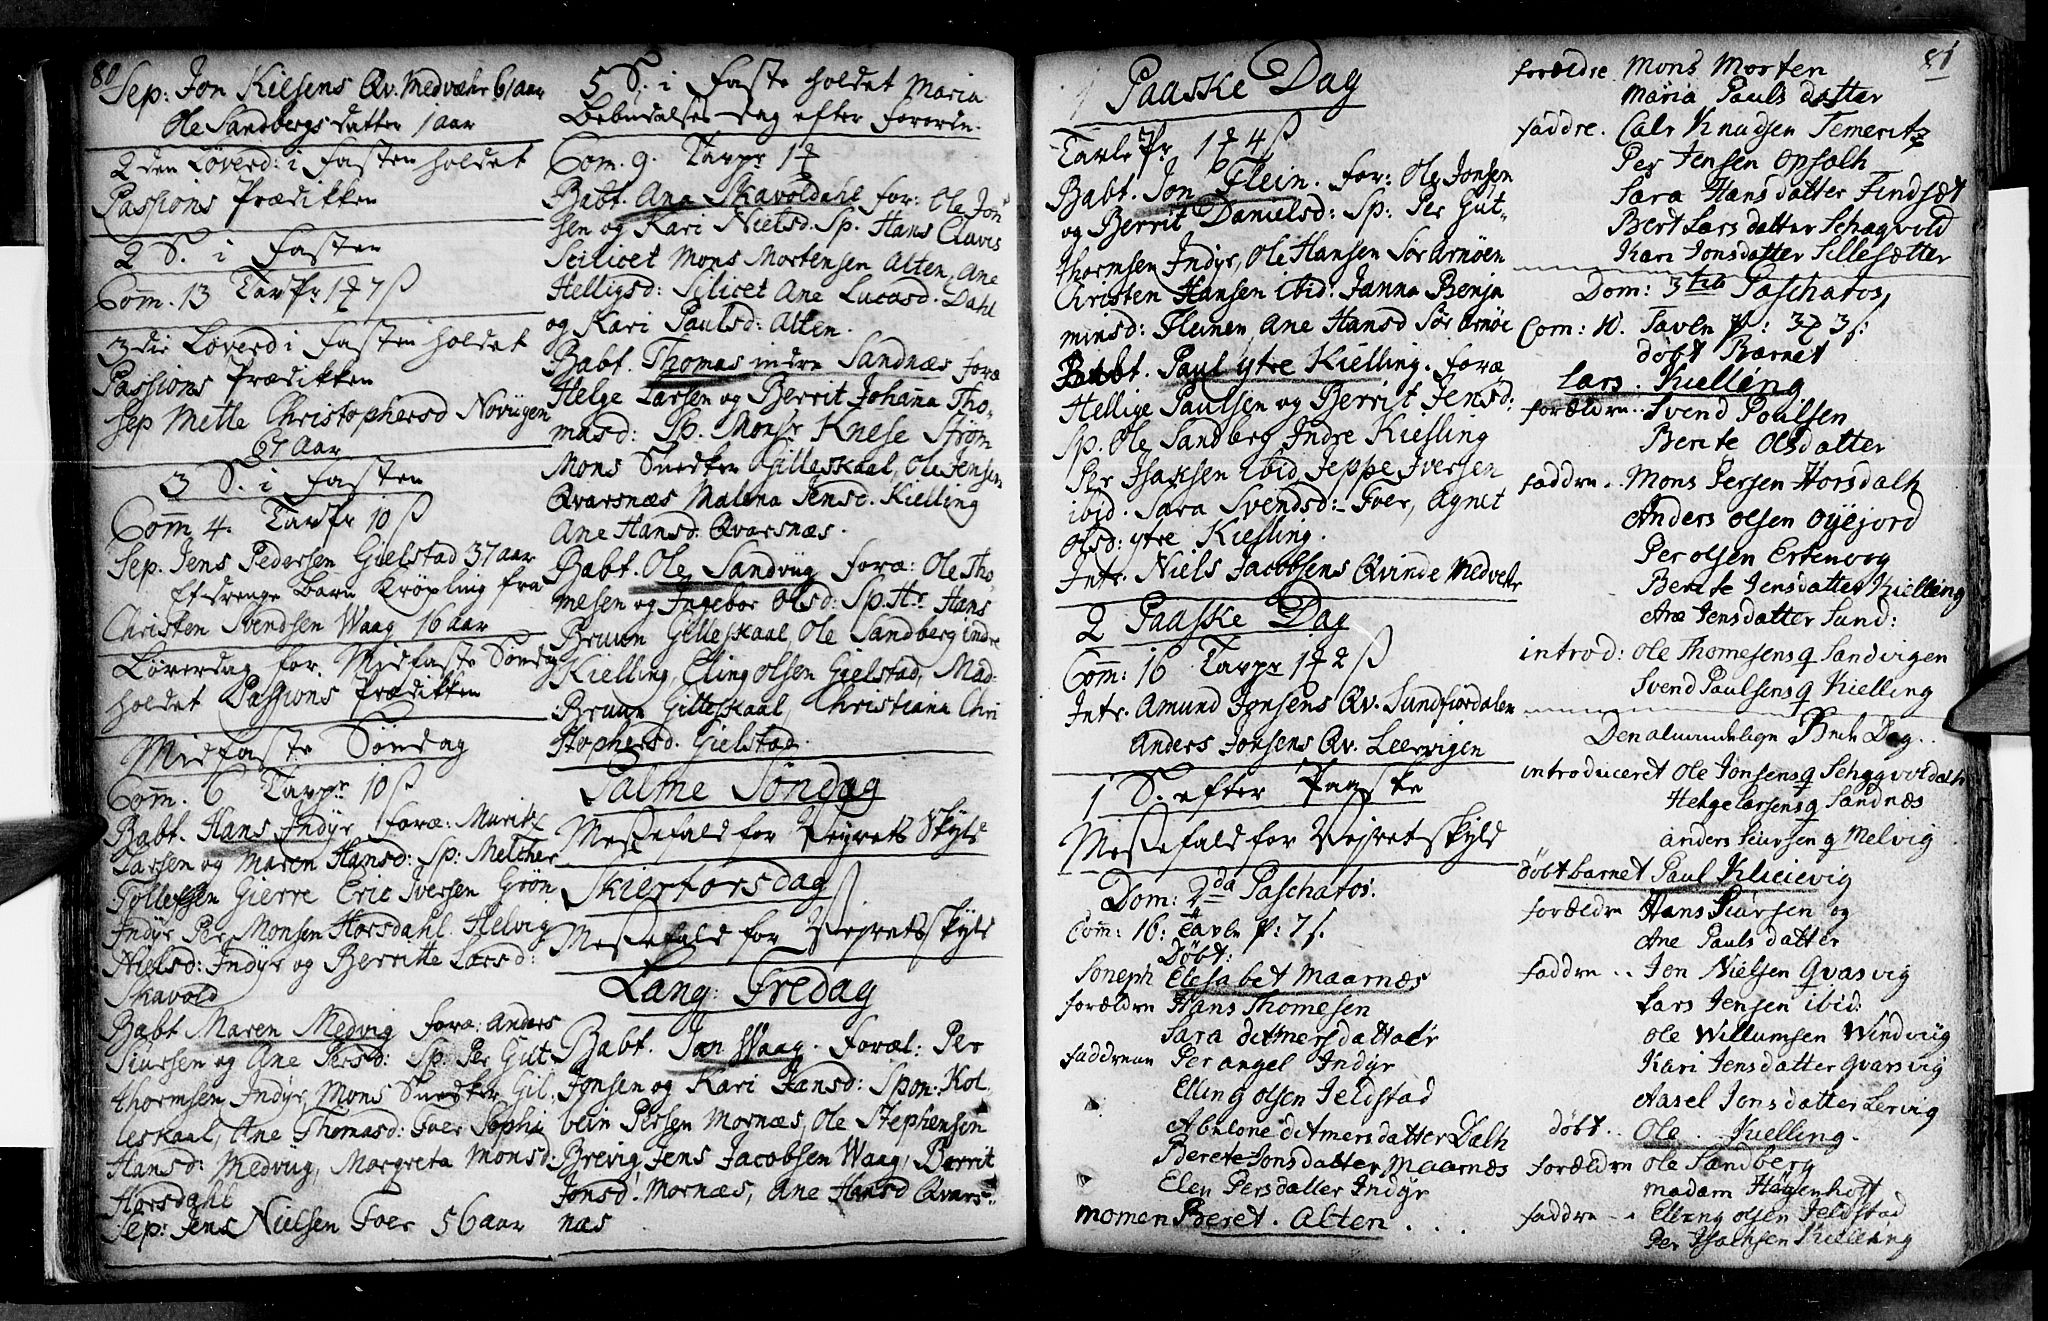 80
Sep: Jon Kielsens Qv. Medvæhr 61 aar
Ole Sandbergs datter 1 aar
2den Løverd: i Fasten holdet
Passions Prædikken
2 S. i Fasten
Com̅. 13 Tavpr 1 7 ß
3die Løverd i Fasten holdet
Passions Prædikken
Sep Mette Christophersd Novigen
67 aar
3 S. i Fasten
Com̅ 4. Tavpr 10 ß
Sep. Jens Pedersen Gielstad 37 aar
Barn Krøpling fra
Christen Svendsen Waag 16 aar
Løverdag for Midfaste Søndag
holdet Passions Prædikken
Midfaste Søndag
Com̅. 6 Tavpr 10 ß
Babt. Hans Indyr foræ:
Larsen og Maren Hansd: Sp: Melcher
Tollefsen Gierre Eric Iversen Grøn
Indyr Per Monsen Horsdahl. Helvig
Nielsd: Indyr og Berritte Larsd:
Skavold
Babt Maren Medvig foræ: Anders
Siursen og Ane Persd: Sp. Per Gut
thormsen Indyr, Mons Snedker Gil
leskaal, Ane Thomasd: Foer Sophi
Hansd: Medvig, Margreta Monsd:
Horsdahl
Sep: Jens Nielsen Foer 56 aar
5 S. i Faste holdet Maria
Bebudelses Dag efter Forordn:
Com. 9. Tavpr 1
Babt. Ana Skavoldahl for: Ole Jon
sen og Kari Nielsd. Sp. Hans Clavis
Scilicet Mons Mortensen Alten, Ane
Helligsd: Silicet Ane Lucasd. Dahl
og Kari Paulsd: Alten.
Babt. Thomas indre Sandnæs foræ
Helge Larsen og Berrit Johanna Tho
masd: Sp. Monsr Knese Strøm
Mons Snedker Gilleskaal, Ole Jensen
Qvarsnæs Malena Jensd. Kielling
Ane Hansd: Qvarsnæs.
Babt. Ole Sandvig foræ: Ole Tho
mesen og Ingebor Olsd: Sp. Hr. Hans
Bruun Gilleskaal, Ole Sandberg indre
Kielling, Eling Olsen Gielstad, Mad:
Bruun Gilleskaal, Christiana Chri
stophersd. Gielstad.
Palme Søndag
Messefald for Veyrets Skyld
Skiertorsdag
Messefald for Vejrets skyld
Lang: Fredag
Babt. Jon Waag. Foræl: Per
Jonsen og Kari Hansd: Spon: Kol
bein Persen Mornæs, Ole Stephensen
Brevig Jens Jacobsen Waag, Berrit
Jonsd. Mornæs, Ane Hansd Qvars:
næs
1 Paaske Dag
Tavle Pr. 1 4 ß
Babt. Jon Flein. For: Ole Jonsen
og Berrit Danielsd: Sp: Per Gut
thormsen Indyr, Ole Hansen Sør Arnøen
Christen Hansen ibid: Janna Benja
minsd: Fleinen Ane Hansd Sør Arnøe
Babt. Paul ytre Kielling. foræ
Hellige Paulsen og Berrit Jensd:
Sp. Ole Sandberg Indre Kielling
Per Isaksen ibid Jeppe Iversen
ibid. Sara Svendsd: Foer, Agnet
Olsd: ytre Kielling.
Intr. Niels Jacobsens Qvinde Medvehr
2 Paaske Dag
Com̅: 16 Tavpr 1 2 ß
Intr. Amund Jonsens Qv. Sundfiordalen
Anders Jonsens Qv. Leervigen
1 S. efter Paaske
Messefald for Vejrets skyld
Dom: 2da Paschatos.
Com̅: 16: Tavle P: 7 s.
Døbt:
Elesabet Maarnæs
forældre Hans Thomesen
Sara ditmersdatter
faddrene Per angel Indyr
Elling olsen Jeldstad
Abelone ditmersdatter Dalh
Berete Jonsdatter Maarnæs
Elen Persdatter Indyr
Beret. Alten
81
forældre. Mons Morten
Maria Pauls datter
faddre. Knudsen
Per Jensen opsalh
Sara Hansdatter Findsæt
Berit Larsdatter
Kari Jonsdatter Sillesætter
Dom: 3tia Paschatos,
Com: 10. Tavle P: 3 3 s:
døbt Barnet
Lars. Kielling
forældre.. Svend Poulsen
Berete Olsdatter
faddre.. Mons Persen Horsdalh
Anders olsen oyejord
Per olsen Ertenvog
Berete Jensdatter Kielling
Ane Jensdatter Sund:
introd: Ole Thomesens q Sandvigen
Svend Paulsens q Kielling
Den almindelige Bede Dag.
introduceret Ole Jonsens q
Helge larsens q Sandnæs
anders siursens q Melvig
døbt barnet Paul
forældre Hans Siursen og
Ane Pauls datter
faddre.. Jon Nielsen Qvarsvig
Lars Jensen ibid:
Ole Willumsen Windviig
Kari Jensdatter qvarsvig
Aasel Jonsdatter Lervig
døbt.. Ole. Kielling.
forældre Ole Sandberg
madam Hagenhoft
faddre.. Elling olsen Jeldstad
Per Isachsen Kielling